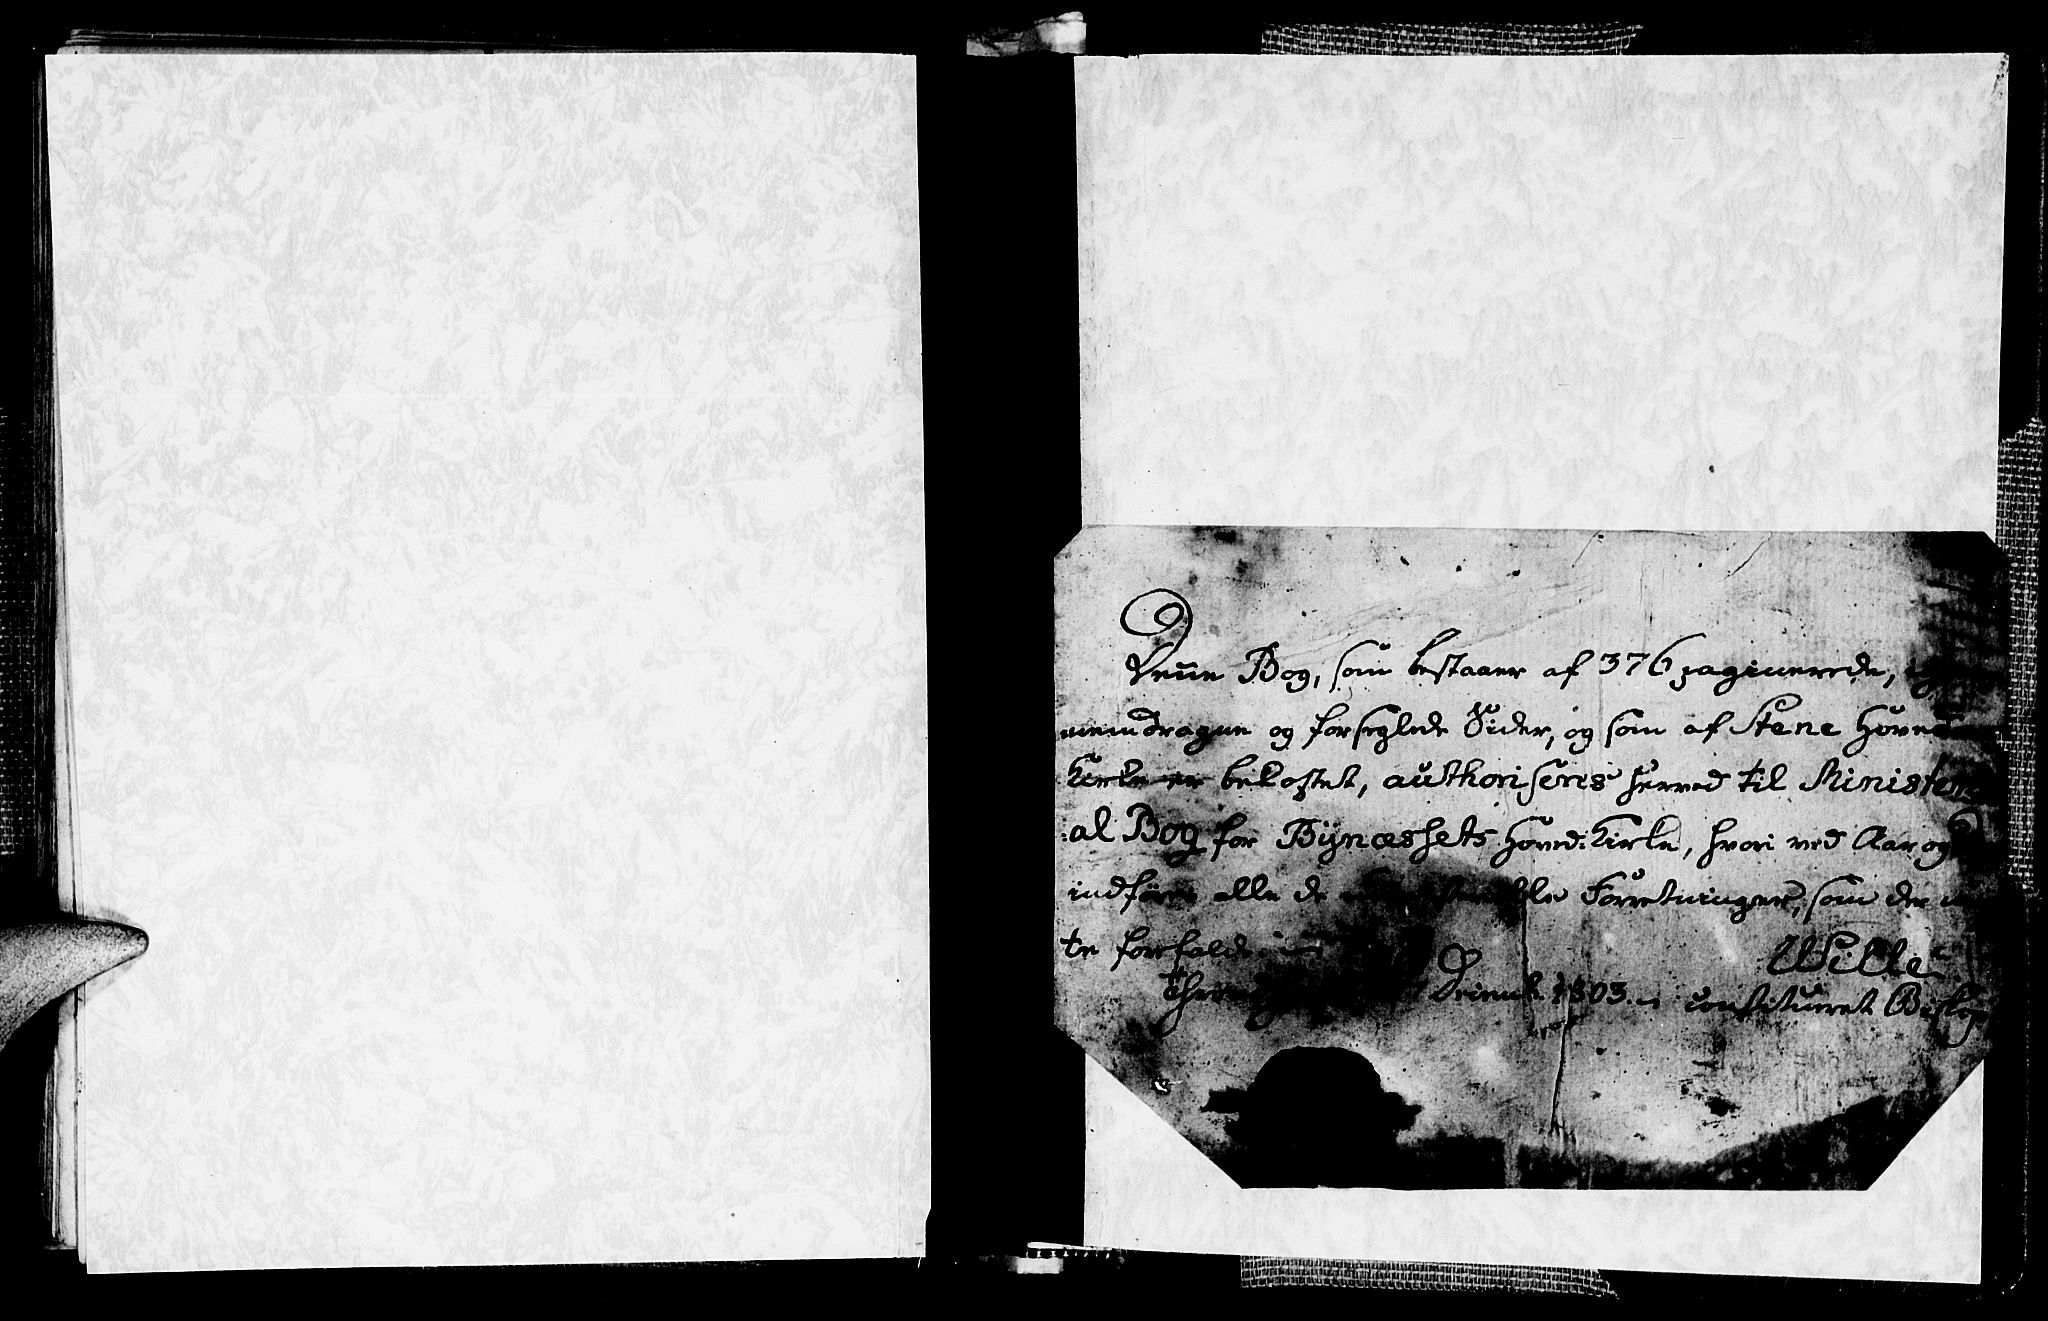 Denne Bog, som bestaaer af 376 paginerede,
nemdragne og forseglede Sider, og som af Stene Hoved
Kirke er bekostet, authoriseres herved til Ministeri
:al Bog for Bÿnæssets Hoved:Kirke, hvori ved Aar og
indføres alle de Forretninger, som der
te forfalde
Wille
Decemb. 1803. constitueret Biskop